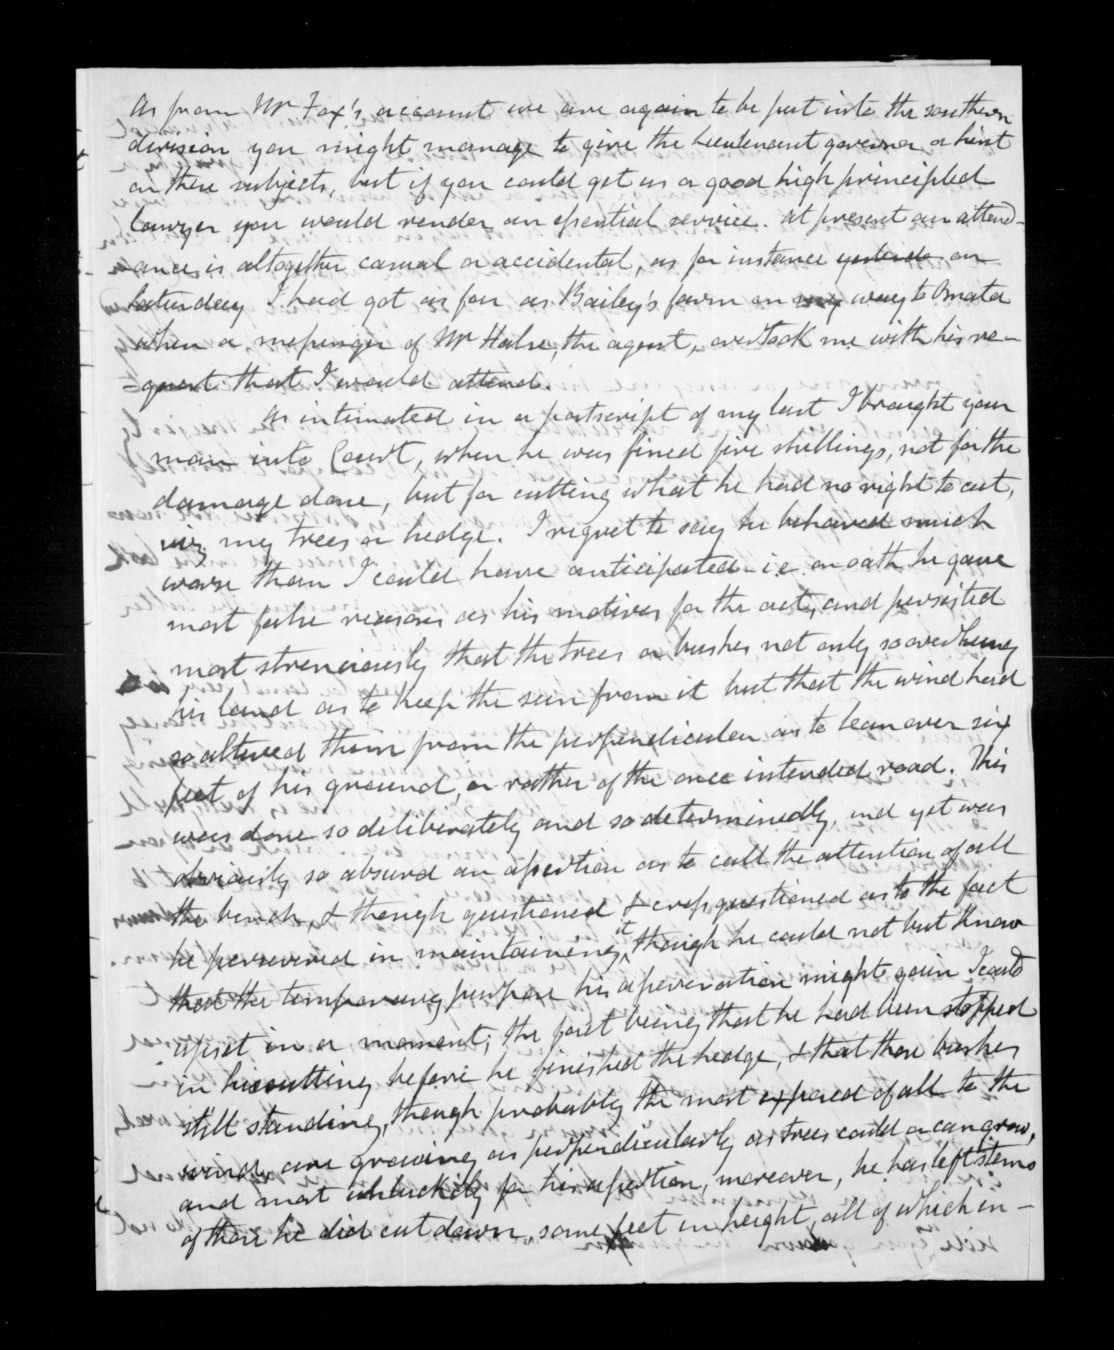 As from Mr Fox's account we are again to be put into the southern
division you might manage to give the Lieutenant governor a hint
on these subjects, but if you could get us a good high principled
lawyer you would render an essential service. At present our attend-
-ance is altogether casual or accidental, as for instance yesterda on
Saturday I had got as far as Bailey's farm on my way to Omata
when a messenger of Mr Halse, the agent, overtook me with his re-
-quest that I would attend.
As intimated in a postscript of my last I brought your
man into Court, when he was fined five shillings, not for the
damage done, but for cutting what he had no right to cut,
viz. my trees or hedge. I regret to say he behaved much
worse than I could have anticipated - i.e. on oath he gave
most false reasons as his motives for the act, and persisted
most strenuously that the trees or bushes not only so overhung
his land as to keep the sun from it but that the wind had
so altered them from the perpendicular as to lean over six
feet of his ground, or rather of the once intended road. This
was done so deliberately and so determinedly, and yet was
obviously so absurd an assertion as to call the attention of all
the bench, & though questioned & crossquestioned as to the fact
he persevered in maintaining it, though he could not but know
that the temporary purpose his asseveration might gain I could
upset in a moment; the fact being that he had been stopped
in his cutting before he finished the hedge, & that those bushes
still standing, though probably the most exposed of all to the
winds, are growing as perpendicularly as trees could or can grow,
and most unluckily for his assertion, moreover, he has left stems
of those he did cut down, some feet in height, all of which in-